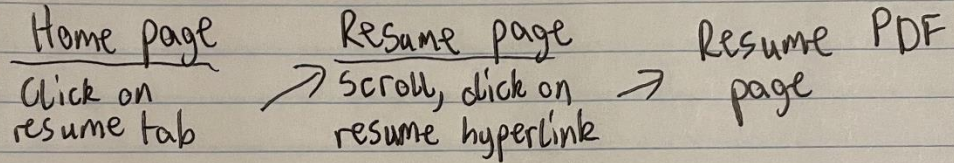 Home page
Click on
resume tab
→
Resume page
Scroll, click on
resume hyperlink
→
Resume PDF
page